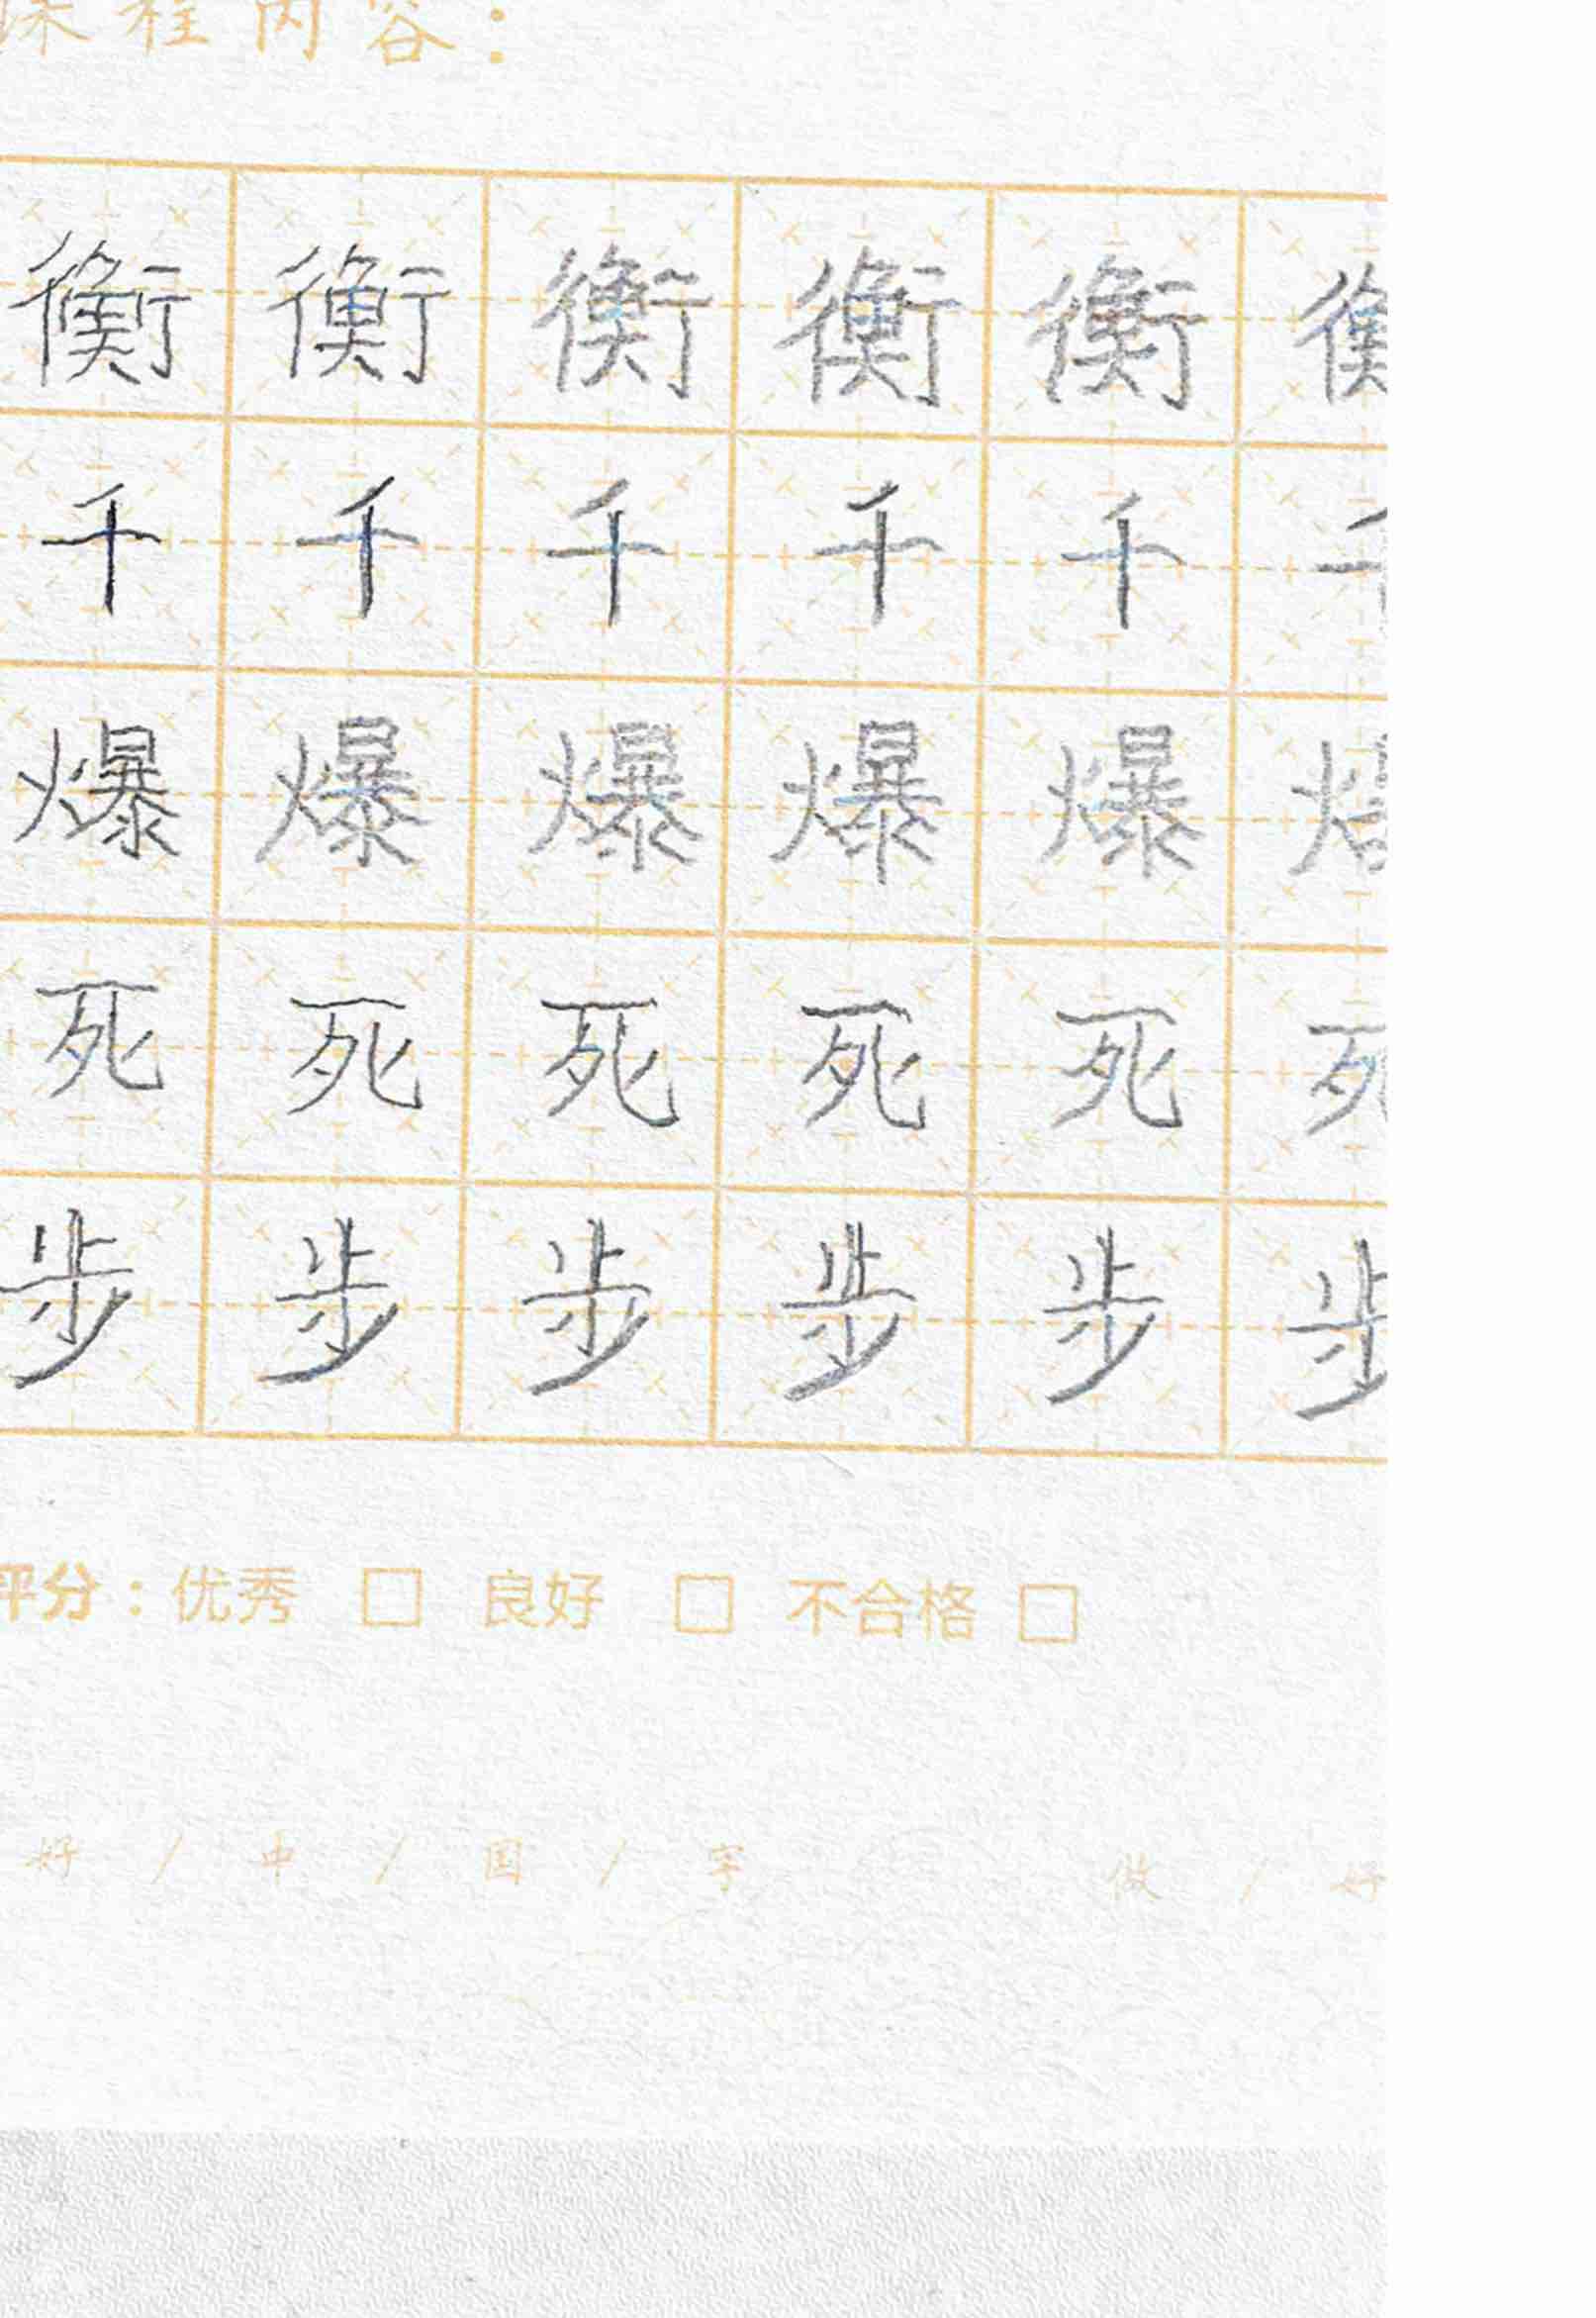 课程内容：
衡 衡 衡 衡 衡 衡
千 千 千 千 千 千
爆 爆 爆 爆 爆 爆
死 死 死 死 死 死
步 步 步 步 步 步
评分：优秀 □ 良好 □ 不合格 □
好 / 中 / 国 / 字 做 / 好